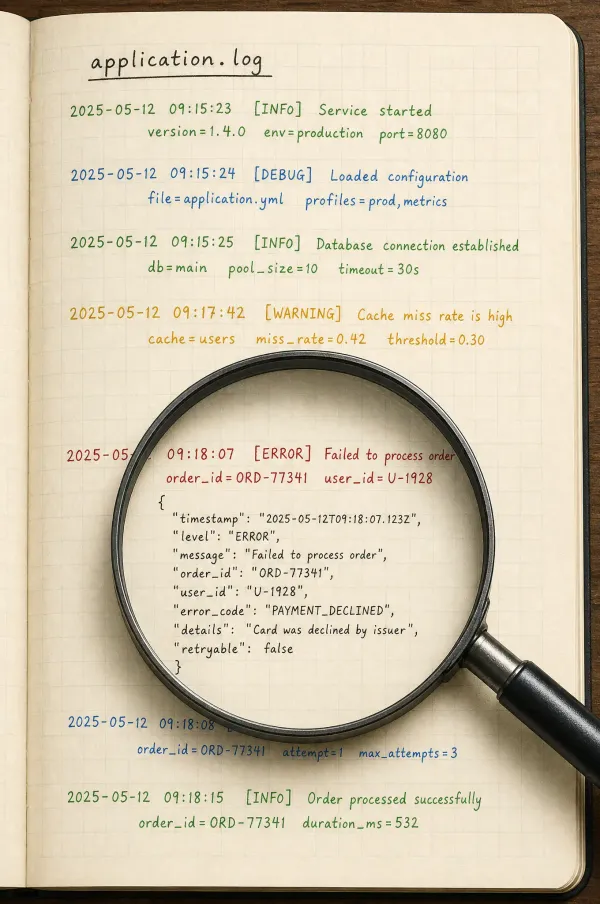 application.log
2025-05-12 09:15:23 [INFO] Service started
version=1.4.0 env=production port=8080
2025-05-12 09:15:24 [DEBUG] Loaded configuration
file=application.yml profiles=prod,metrics
2025-05-12 09:15:25 [INFO] Database connection established
db=main pool_size=10 timeout=30s
2025-05-12 09:17:42 [WARNING] Cache miss rate is high
cache=users miss_rate=0.42 threshold=0.30
2025-05- 09:18:07 [ERROR] Failed to process order
order_id=ORD-77341 user_id=U-1928
{
"timestamp": "2025-05-12T09:18:07.123Z",
"level": "ERROR",
"message": "Failed to process order",
"order_id": "ORD-77341",
"user_id": "U-1928",
"error_code": "PAYMENT_DECLINED",
"details": "Card was declined by issuer",
"retryable": false
}
2025-05-12 09:18:08
order_id=ORD-77341 attempt=1 max_attempts=3
2025-05-12 09:18:15 [INFO] Order processed successfully
order_id=ORD-77341 duration_ms=532